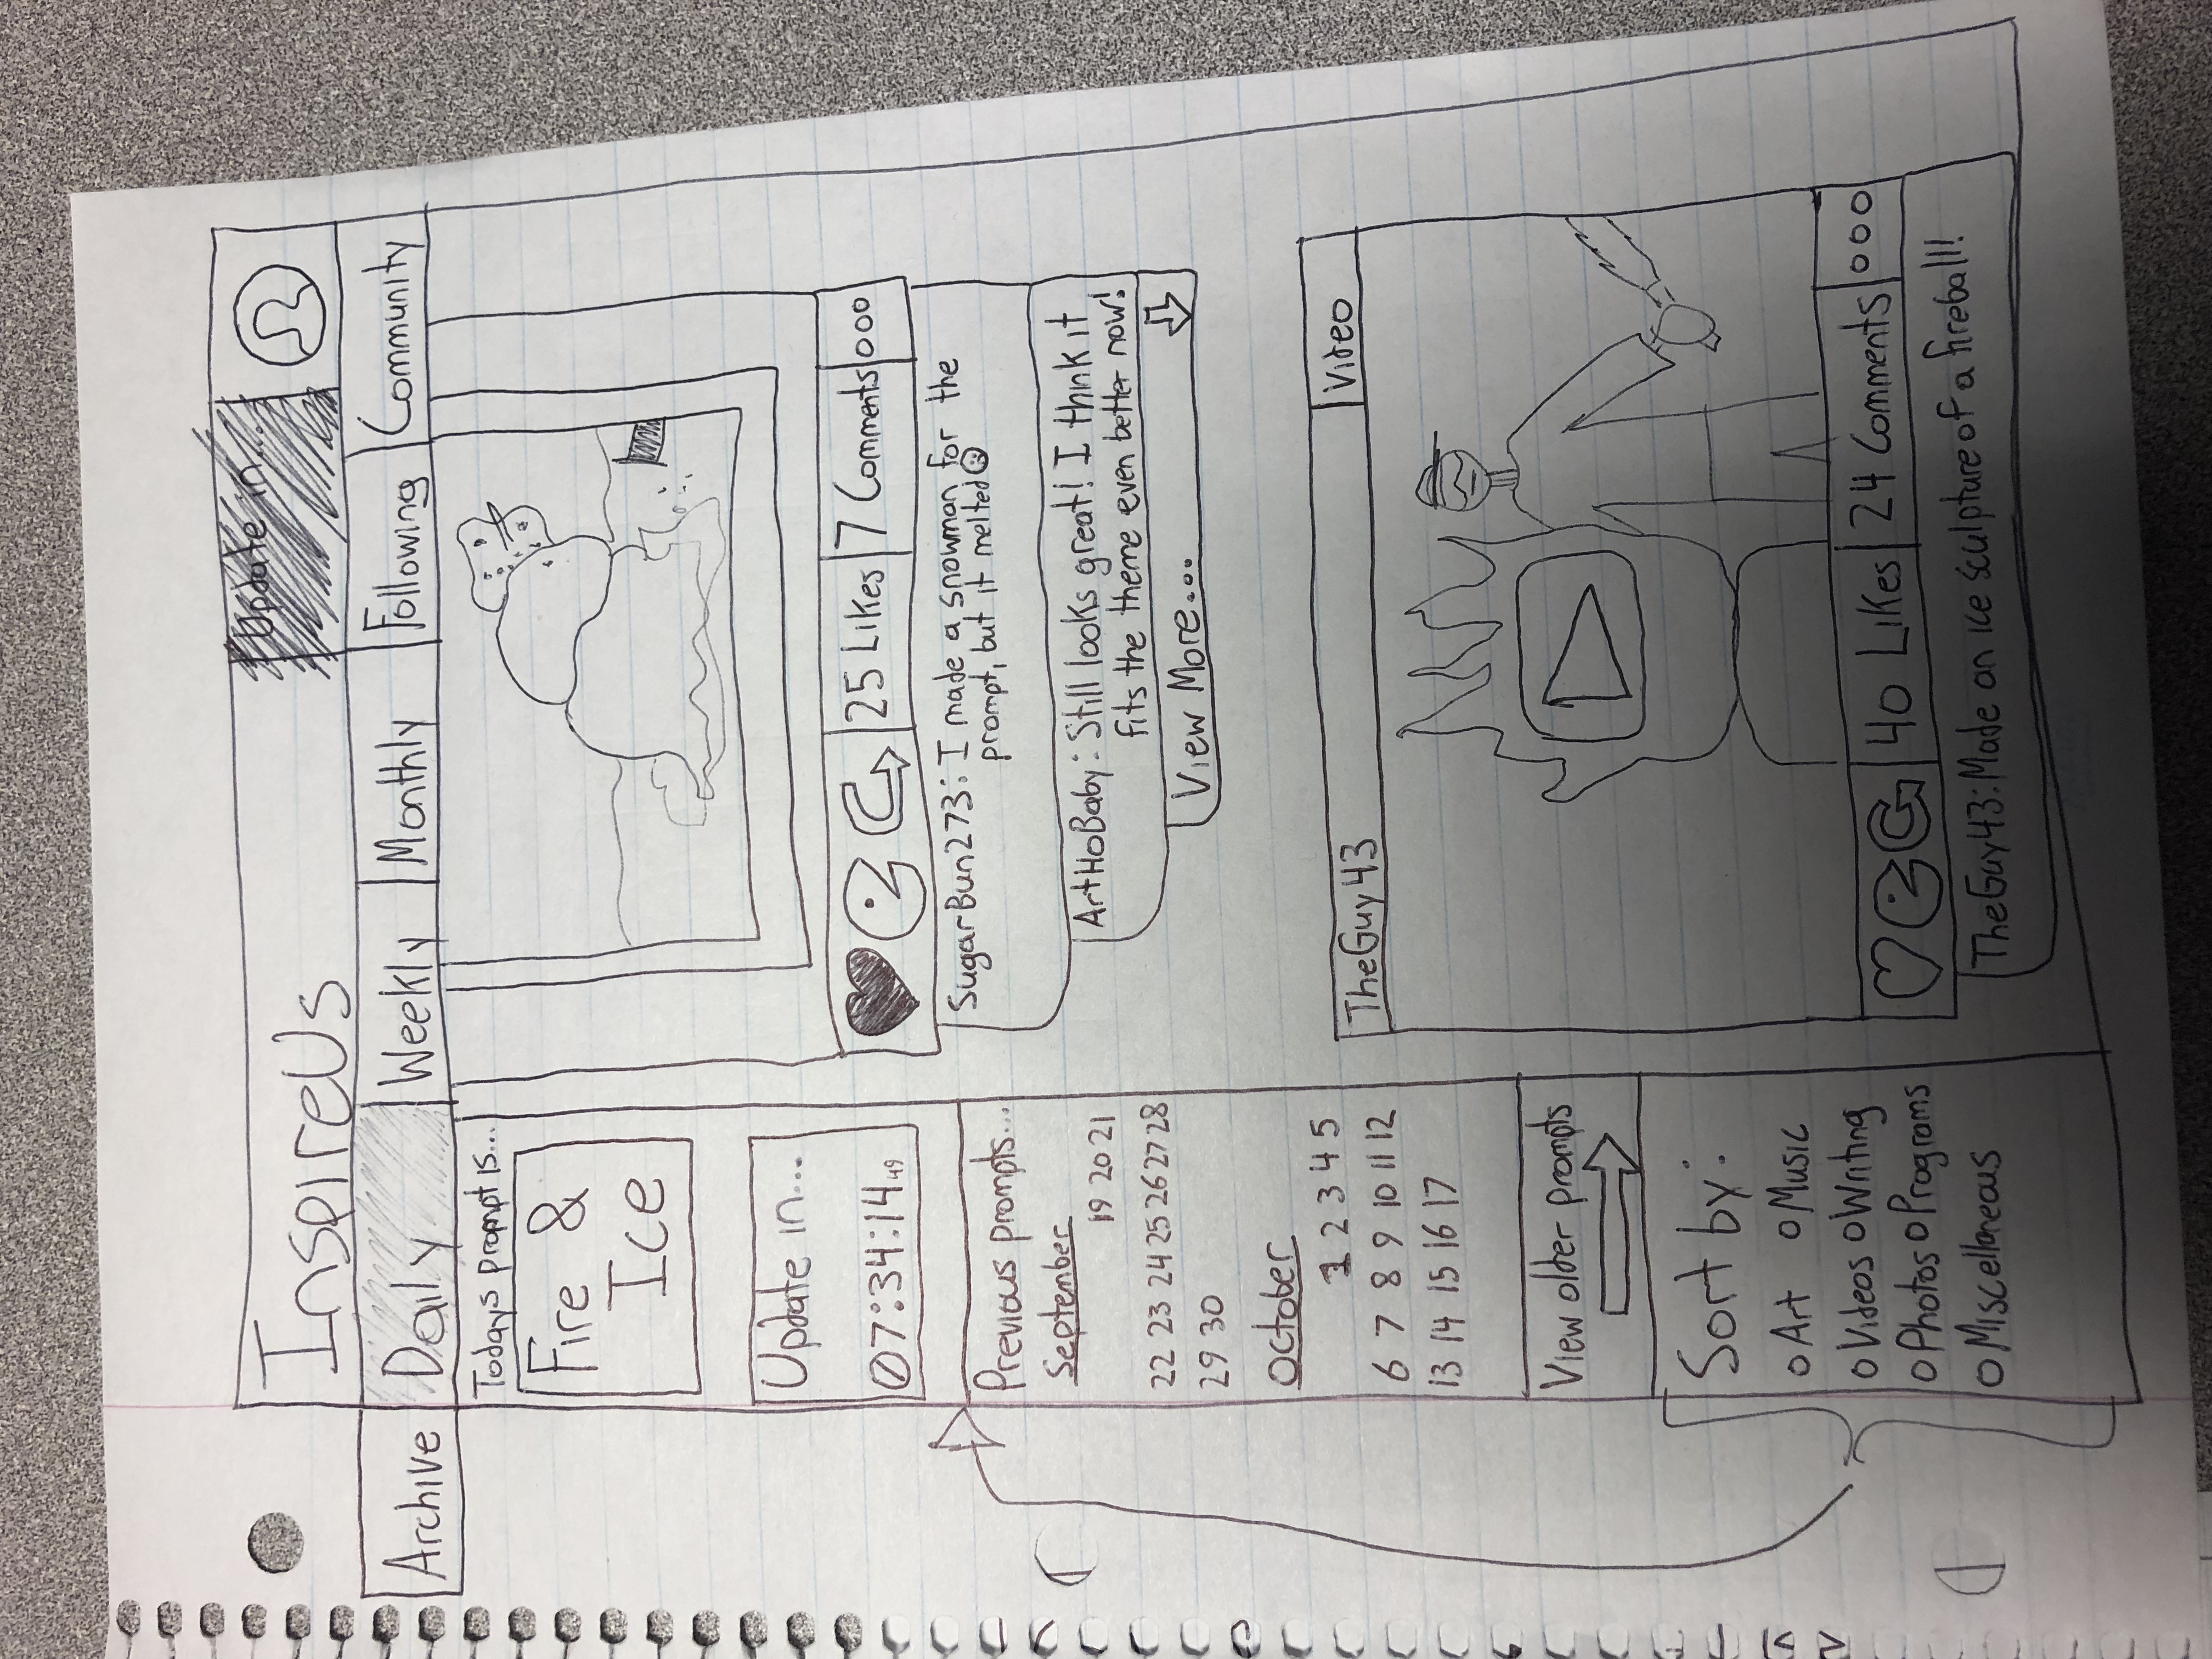 InspireUs
Update in...
Archive
Daily
Weekly
Monthly
Following
Community
Todays prompt is...
Fire &
Ice
Update in...
07:34:14 49
Previous prompts...
September
19 20 21
22 23 24 25 26 27 28
29 30
October
1 2 3 4 5
6 7 8 9 10 11 12
13 14 15 16 17
View older prompts
Sort by:
Art Music
Videos Writing
Photos Programs
Miscellaneous
25 Likes
7 Comments
SugarBun273: I made a snowman for the
prompt, but it melted
ArtHoBaby: Still looks great! I think it
fits the theme even better now!
View More...
TheGuy43
Video
40 Likes
24 Comments
TheGuy43: Made an ice sculpture of a fireball!